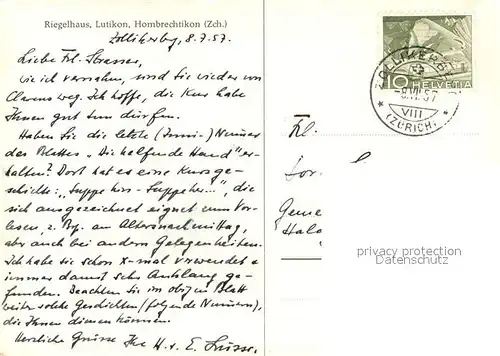 Riegelhaus, Lutikon, Hombrechtikon (Zch.)
Zollikerberg, 8.7.57
Liebe Frl. Strasser,
wie ich vernahm, sind Sie wieder von
Clarens weg. Ich hoffe, die Kur habe
Ihnen gut tun dürfen.
Haben Sie die letzte (Juni-) Nummer
des Blattes "Die helfende Hand" er-
halten? Dort hat es eine Kurzge-
schichte: "Suppe hin - Suppe her...", die
sich ausgezeichnet eignet zum Vor-
lesen, z. Bsp. am Altersnachmittag,
aber auch bei andern Gelegenheiten.
Ich habe sie schon x-mal verwendet &
immer damit sehr Anklang ge-
funden. Beachten Sie im obigen Blatt
weitere solche Geschichten (folgende Nummern),
die Ihnen dienen können.
Herzliche Grüsse Ihr H. & E.
10 HELVETIA
ZOLLIKERBERG
-8.VII.57
VIII
(ZÜRICH)
Frl.
Gemei
privacy protection
Datenschutz